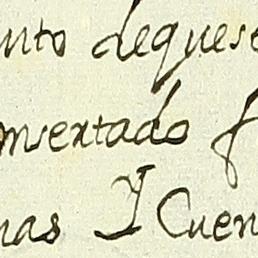 nto dequese
nsertado f
nas Y Cuen